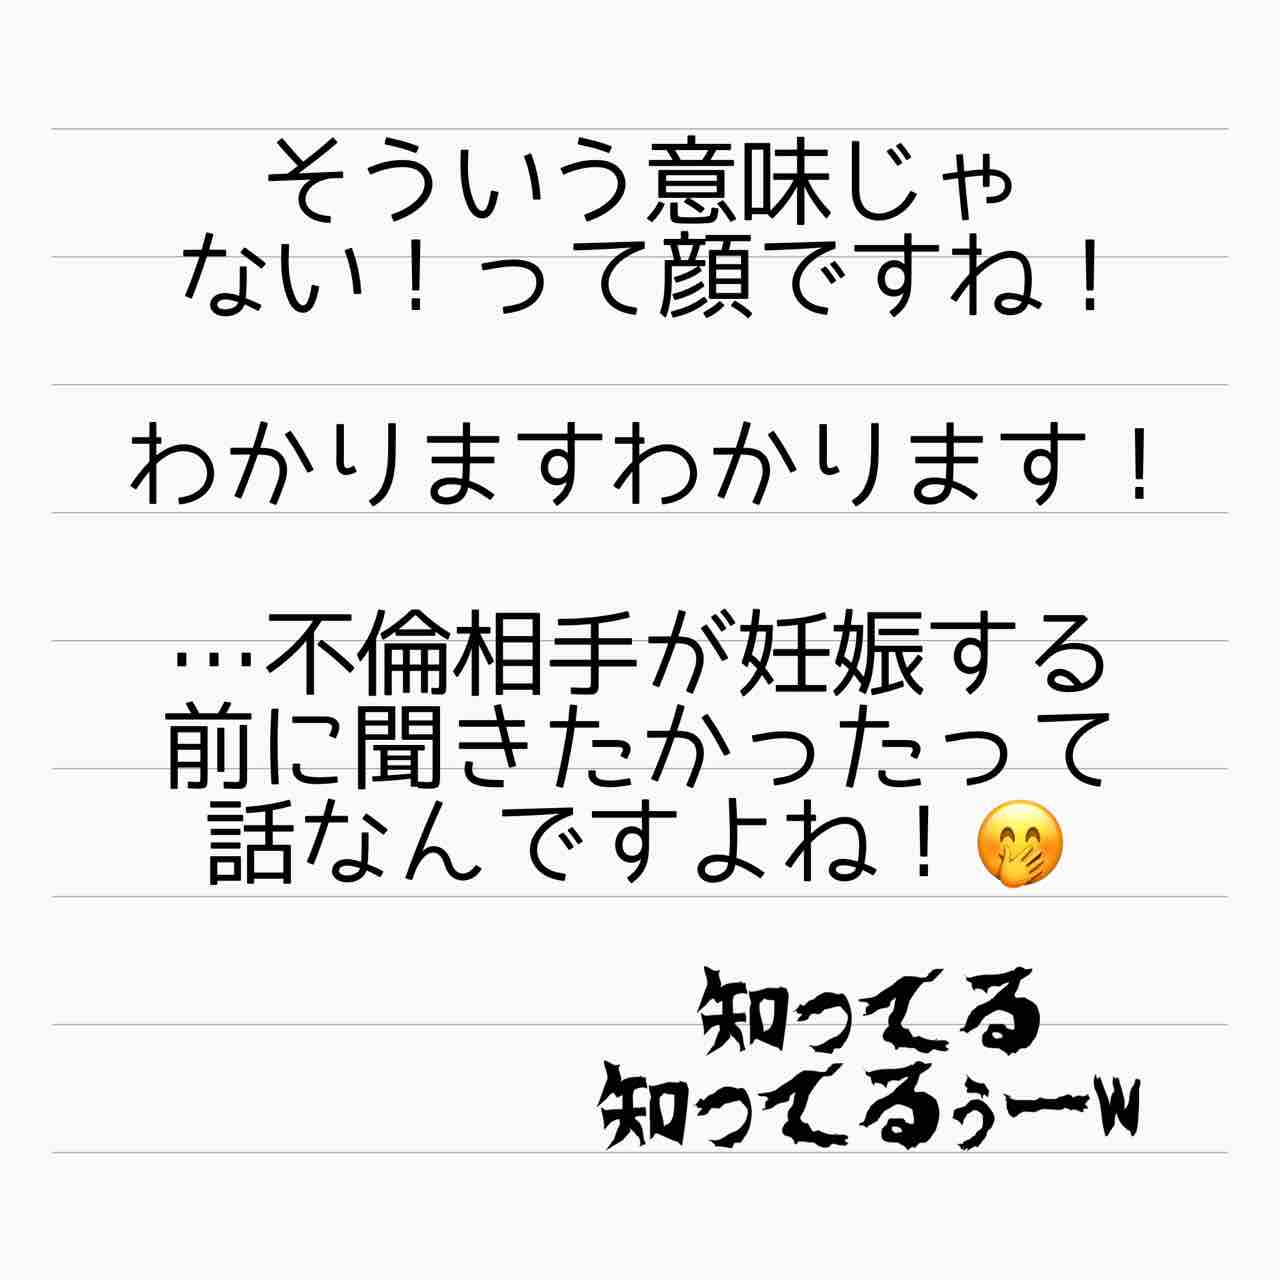 そういう意味じゃ
ない！って顔ですね！
わかりますわかります！
…不倫相手が妊娠する
前に聞きたかったって
話なんですよね！🤭
知ってる
知ってるぅーw